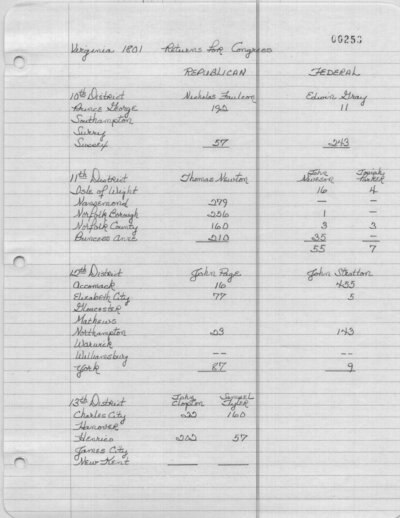 00253
Virginia 1801 Returns For Congress
REPUBLICAN FEDERAL
10th District Nicholas Faulcon Edwin Gray
Prince George 120 11
Southampton
Surry
Sussex 57 243
11th District Thomas Newton John Nevison Josiah Parker
Isle of Wight 16 4
Nansemond 279 — —
Norfolk Borough 226 1 —
Norfolk County 160 3 3
Princess Anne 210 35 —
55 7
12th District John Page John Stratton
Accomack 16 455
Elizabeth City 77 5
Gloucester
Mathews
Northampton 23 143
Warwick
Williamsburg -- --
York 87 9
13th District John Clopton Samuel Tyler
Charles City 22 160
Hanover
Henrico 202 57
James City
New Kent